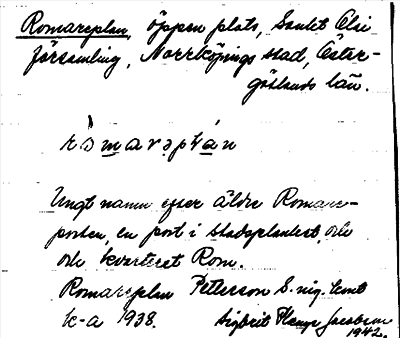 Romareplan, öppen plats, Sankt Olai
församling, Norrköpings stad, Öster-
götlands län.
Ungt namn efter äldre Romare-
porten, en port i stadsplanket, och
och kvarteret Rom.
Romareplan Pettersson S. nig. tomt
k-a 1938. Sigbrit Plænge Jacobson
1942.